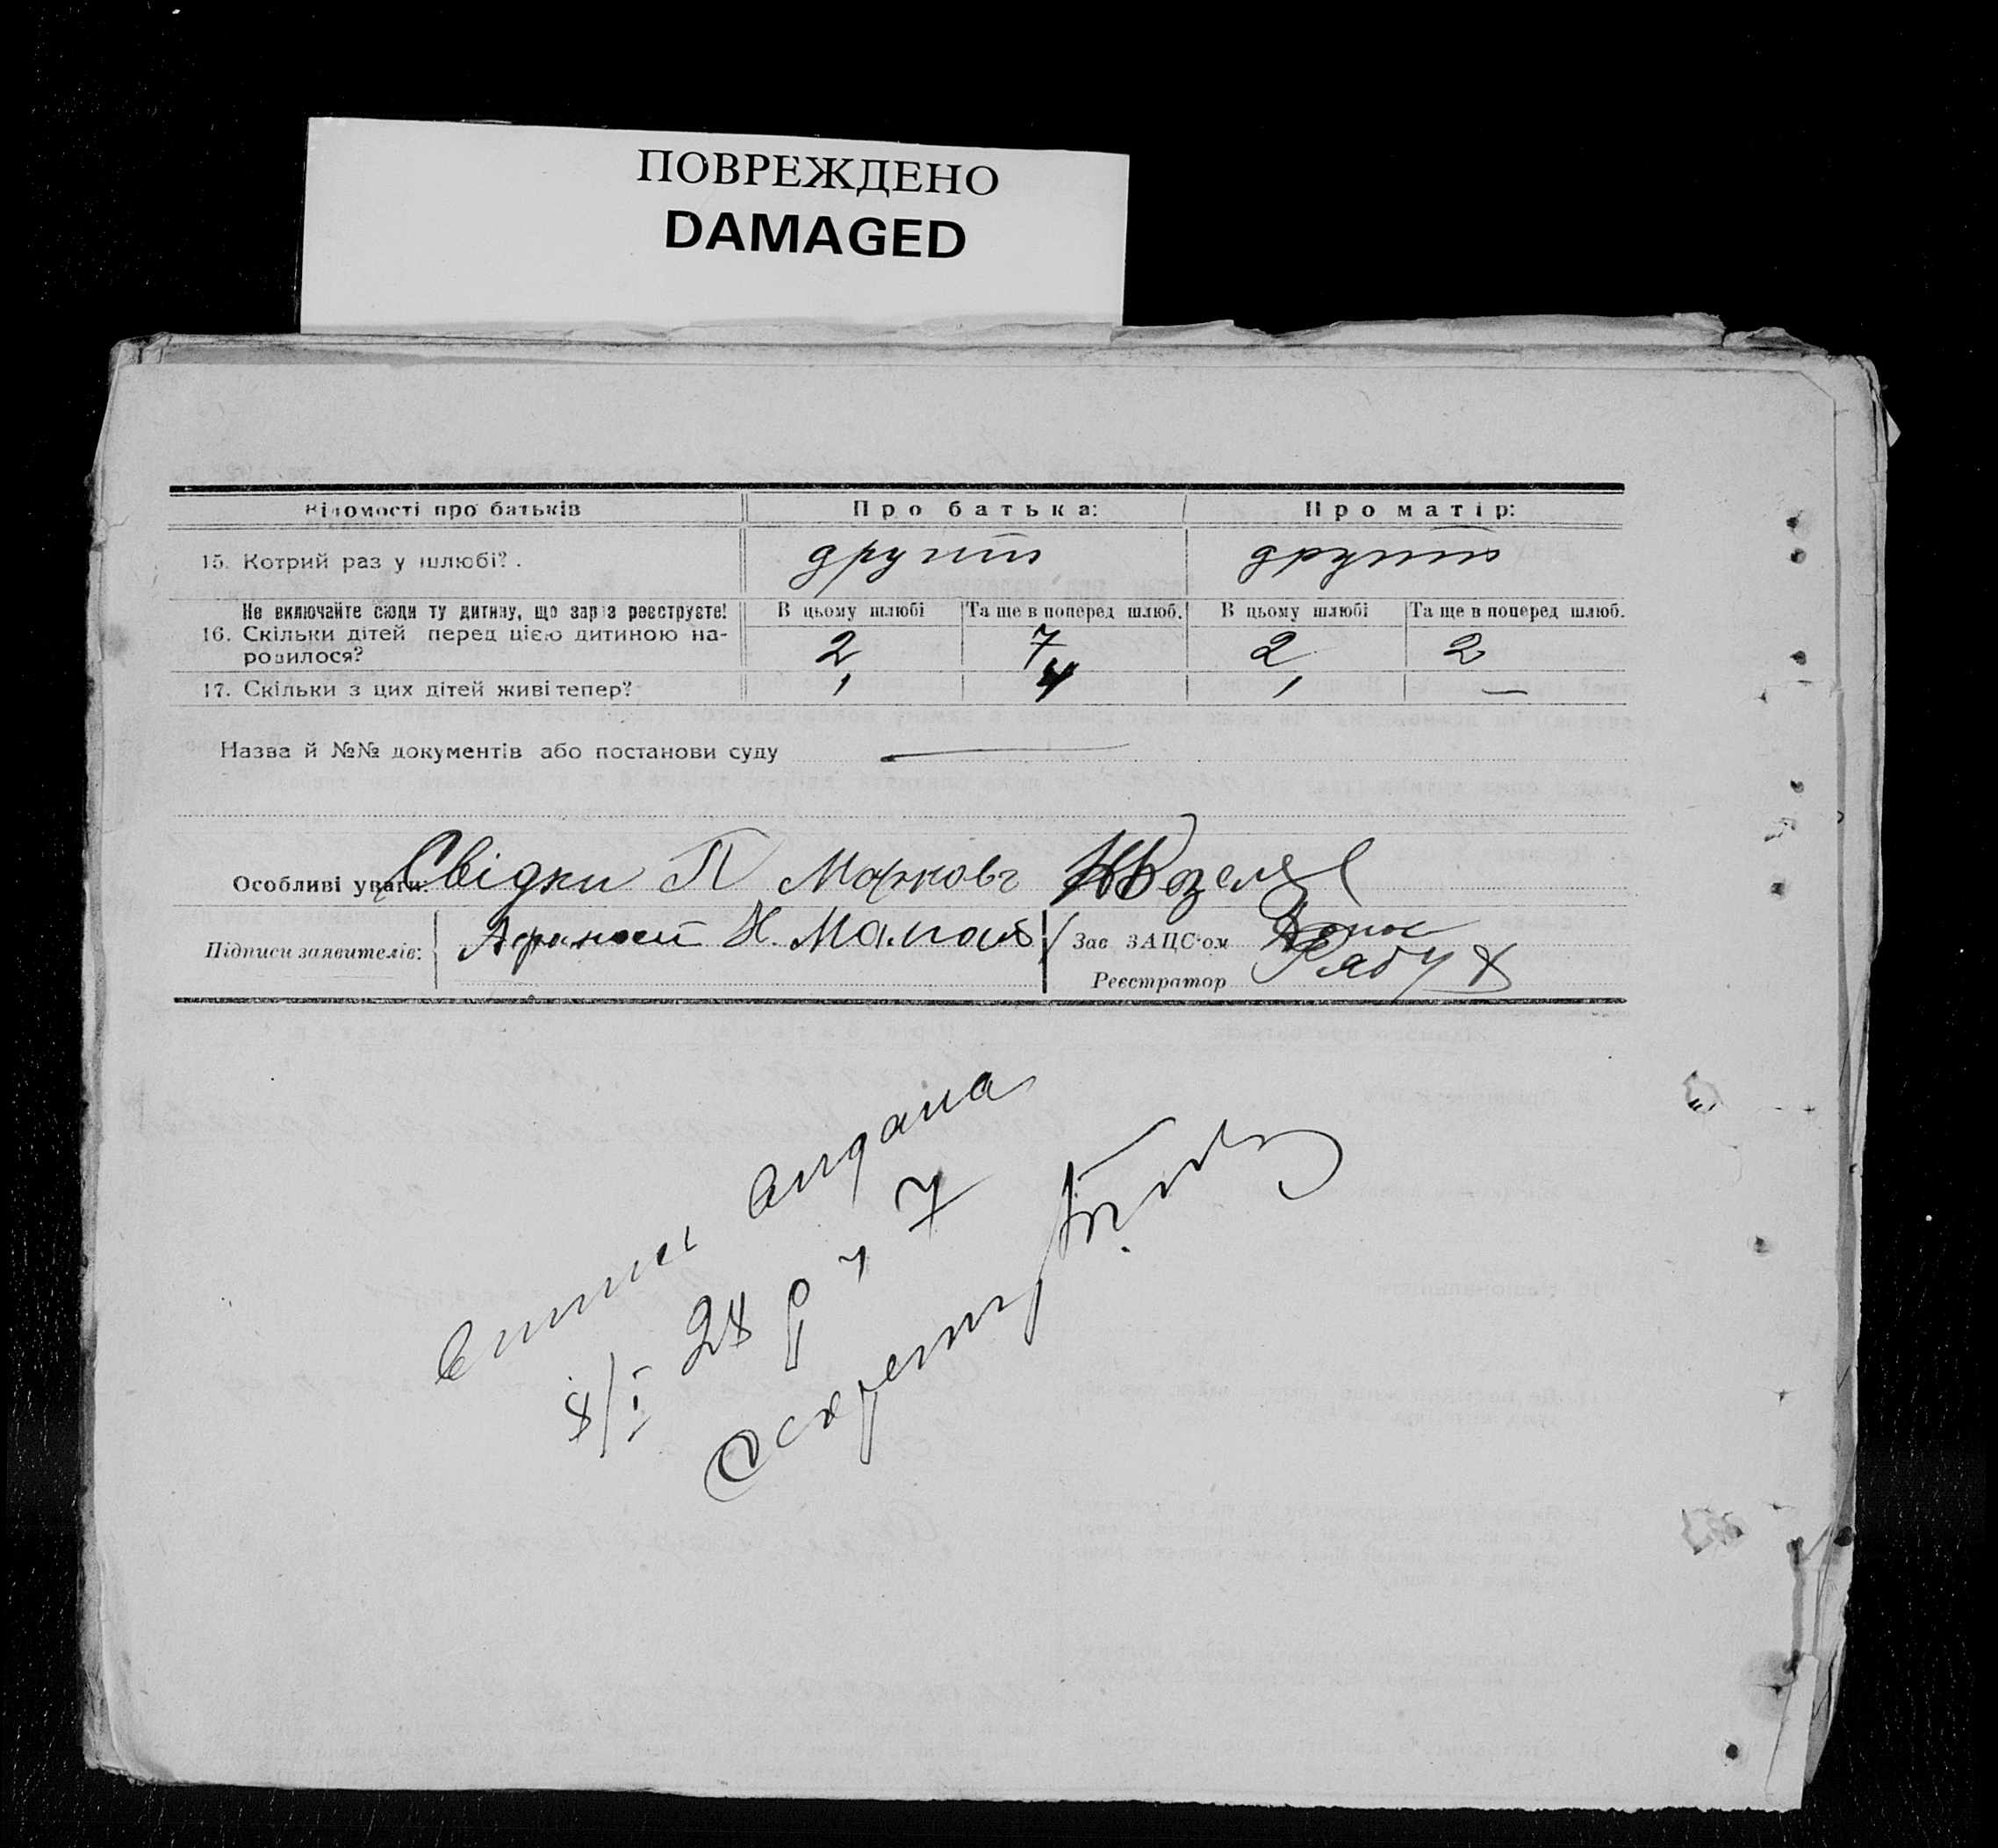 ПОВРЕЖДЕНО
DAMAGED
Відомості про батьків Про батька: Про матір:
15. Котрий раз у шлюбі? . другий другий
Не включайте сюди ту дитину, що зараз реєструєте! В цьому шлюбі Та ще в поперед шлюб. В цьому шлюбі Та ще в поперед шлюб.
16. Скільки дітей перед цією дитиною на- 2 7 2 2
родилося?
17. Скільки з цих дітей живі тепер? 1 4 1 —
Назва й №№ документів або постанови суду
Особливі уваги: Свідки П Марковъ
Підписи заявителів: Н. Зав ЗАЦС'ом
Реєстратор
видана
8/I 28 р ч 7